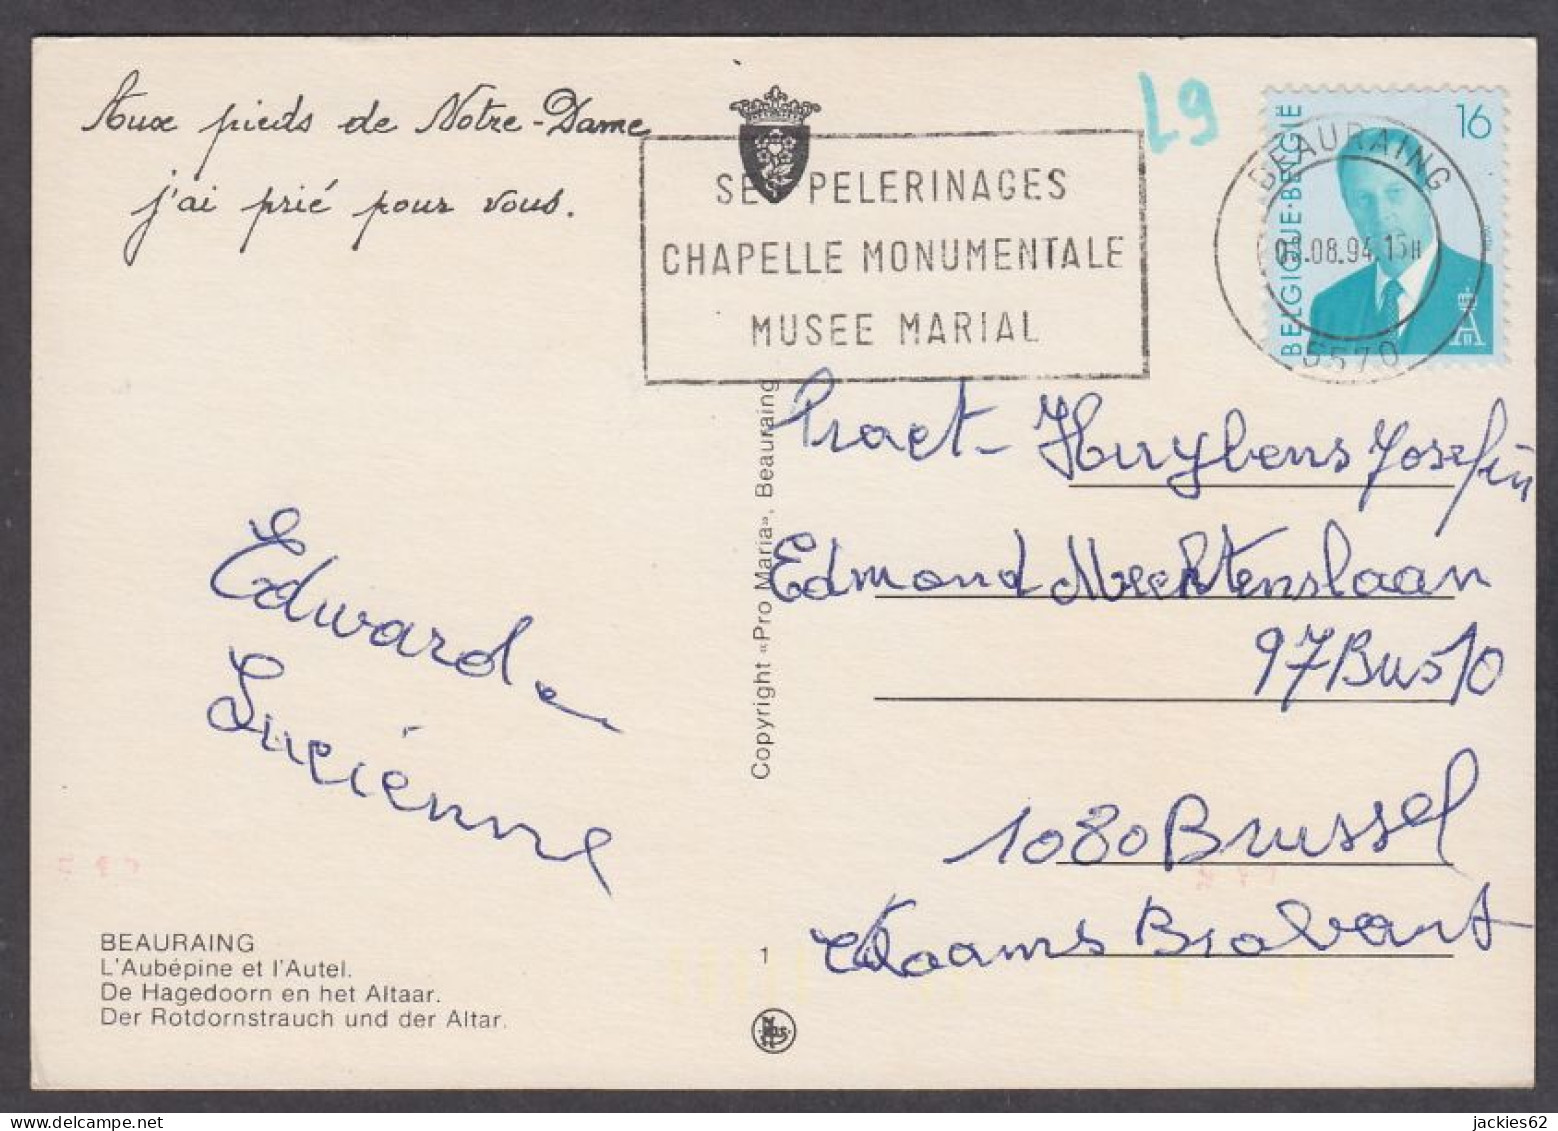 Aux pieds de Notre-Dame
j'ai prié pour vous.
SES PELERINAGES
CHAPELLE MONUMENTALE
MUSEE MARIAL
L9
BELGIQUE·BELGIË
16
BEAURAING
08.94.15H
5570
Edward
Lucienne
Copyright «Pro Maria», Beauraing
Huybens Josefin
Edmond Mechtenslaan
97 Bus 10
1080 Brussel
Vlaams Brabant
BEAURAING
L'Aubépine et l'Autel.
De Hagedoorn en het Altaar.
Der Rotdornstrauch und der Altar.
1
jackies62